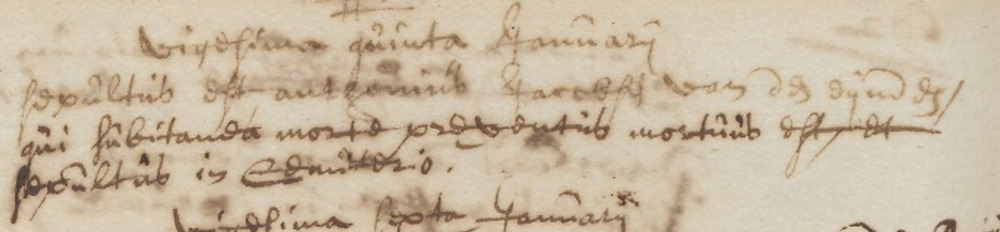 vigesima quinta Januarij
sepultus est anthonius Jacobsz van den eijnden,
qui subitanea morte preventus mortuus est, et
sepultus in Cemiterio.
vigesima sexta Januarij